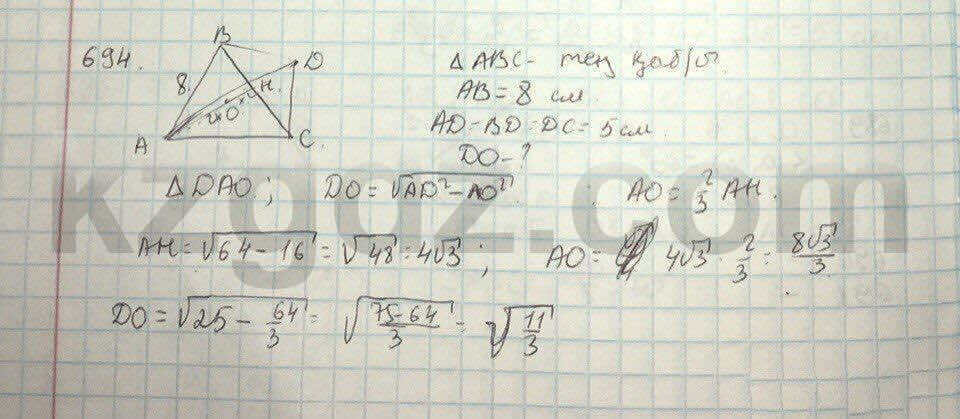 694.
B
D
8
H
2x O x
A
C
△ABC - тең қаб/лі.
AB = 8 см
AD = BD = DC = 5 см.
DO - ?
△DAO; DO = √(AD² - AO²) AO = 2/3 AH.
AH = √(64 - 16) = √48 = 4√3; AO = 4√3 · 2/3 = 8√3/3
DO = √(25 - 64/3) = √((75-64)/3) = √(11/3)
kzgdz.com